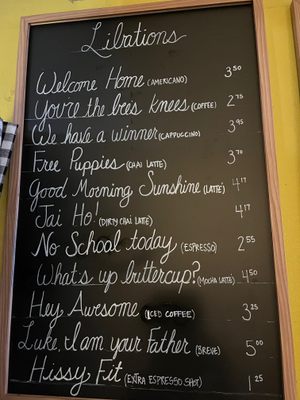 Libations
Welcome Home (AMERICANO) 3.50
You're the bee's knees (COFFEE) 2.75
We have a winner (CAPPUCCINO) 3.95
Free Puppies (CHAI LATTE) 3.70
Good Morning Sunshine (LATTE) 4.17
Jai Ho! (DIRTY CHAI LATTE) 4.17
No School today (ESPRESSO) 2.55
What's up buttercup? (MOCHA LATTE) 4.50
Hey Awesome (ICED COFFEE) 3.25
Luke, I am your Father (BREVE) 5.00
Hissy Fit (EXTRA ESPRESSO SHOT) 1.25